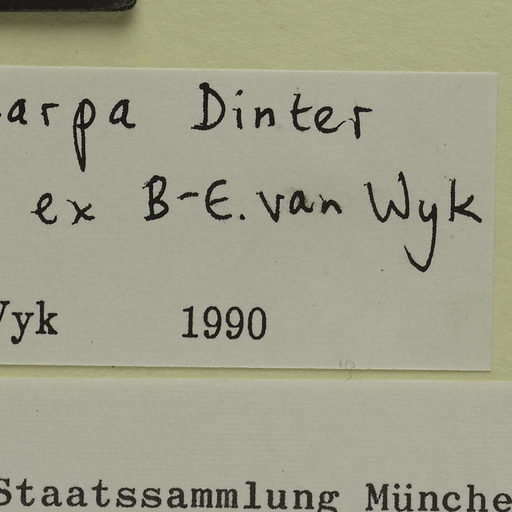 arpa Dinter
ex B-E. van Wyk
Wyk 1990
Staatssammlung Münche